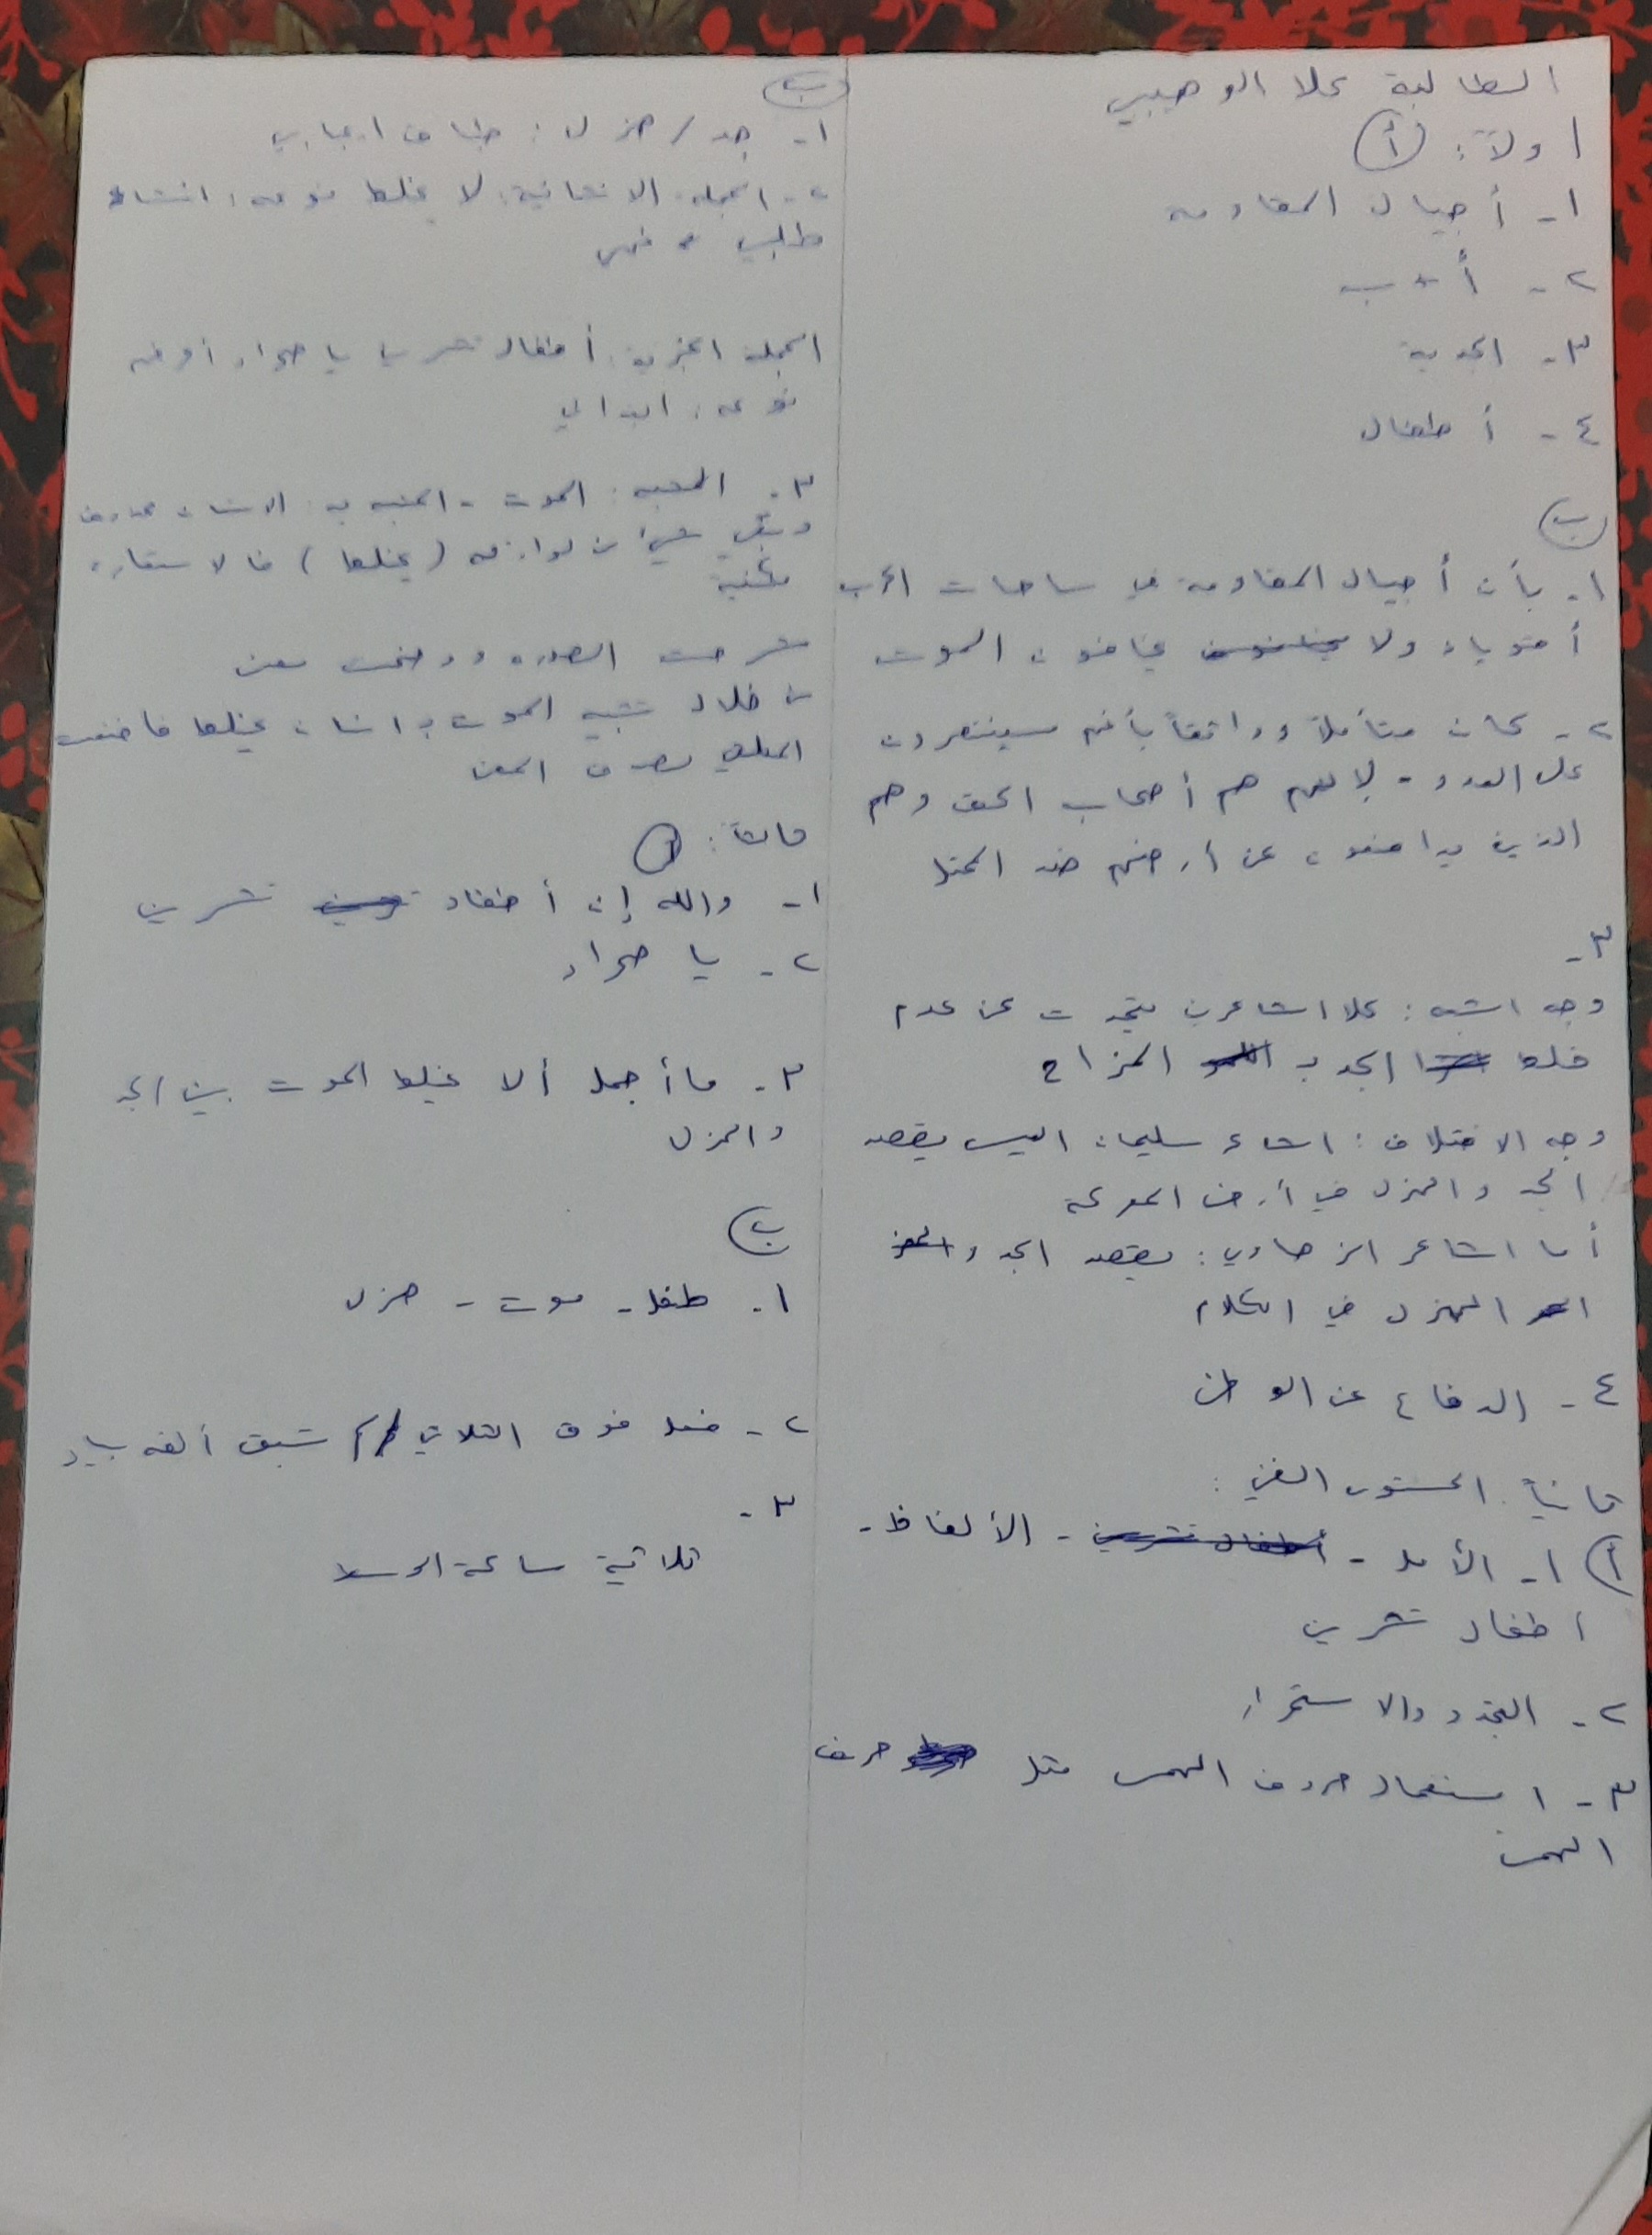 الطالبة علا الوهيبي
اولاً: أ
١- أجيال المقاومة
٢- أ + ب
٣- الجدية
٤- أطفال
ب
١- بأن أجيال المقاومة في ساحات الحرب
أقوياء ولا يخافون الموت
٢- كان متأملاً وواثقاً بأنهم سينتصرون
على العدو - لانهم هم أصحاب الحق وهم
الذين يدافعون عن أرضهم ضد المحتل
٣-
وجه الشبه: كلا الشاعرين يتحدث عن عدم
خلط الجد بـ المزاح
وجه الاختلاف: الشاعر سليمان العيسى يقصد
الجد والهزل في أرض المعركة
أما الشاعر الزهاوي: يقصد الجد و
الهزل في الكلام
٤- الدفاع عن الوطن
ثانياً: المستوى الفني:
أ) ١- الأمل - الألفاظ -
اطفال تشرين
٢- التجدد والاستمرار
٣- استعمال حروف الهمس مثل حرف
الهمس
ب
١- جد / هزل: طباق ايجابي
٢- الجملة الانشائية: لا يخلط نوعه: انشاء
طلبي نهي
الجملة الخبرية: أطفال تشرين يا صحراء أعرفهم
نوعه: ابتدائي
٣- المشبه: الموت - المشبه به: الانسان محذوف
وبقي شيء من لوازمه (يخلط) فالاستعارة
مكنية
شرحت الصورة ووضحت معنى
من خلال تشبيه الموت بـ انسان يخلط فاضفت
المتلقي بصدق المعنى
ثالثاً: أ
١- والله إن أطفال تشرين
٢- يا صحراء
٣- ما أجمل ألا يخلط الموت بين الجد
والهزل
ب
١- طفل - موت - هزل
٢- فعل فوق الثلاثي // سبق ألفه بياء
٣-
ثلاثية ساكنة الوسط